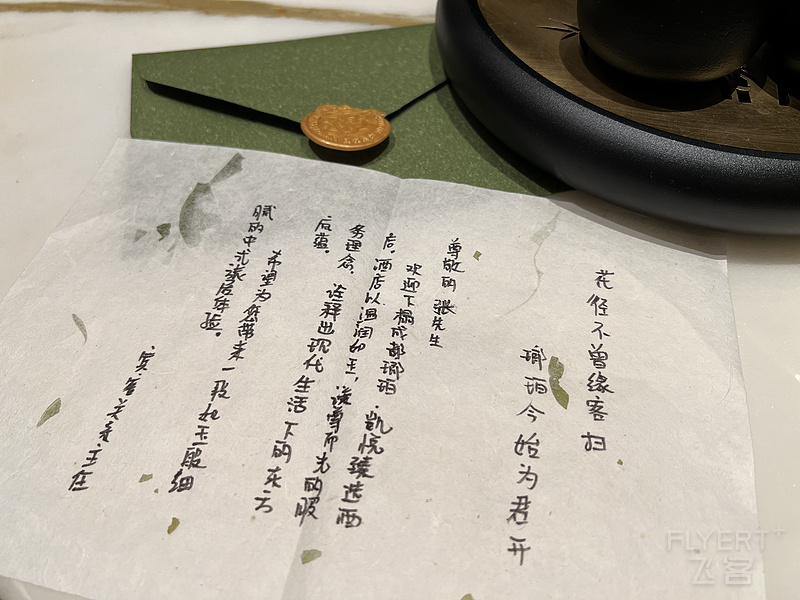 花径不曾缘客扫
瑯珀今始为君开
尊敬的 张先生
欢迎下榻成都瑯珀·凯悦臻选酒
店。酒店以温润如玉,谦尊而光的服
务理念,诠释出现代生活下的东方
底蕴。
希望为您带来一段如玉般细
腻的中式旅居体验。
宾客关爱
FLYERT+
飞客